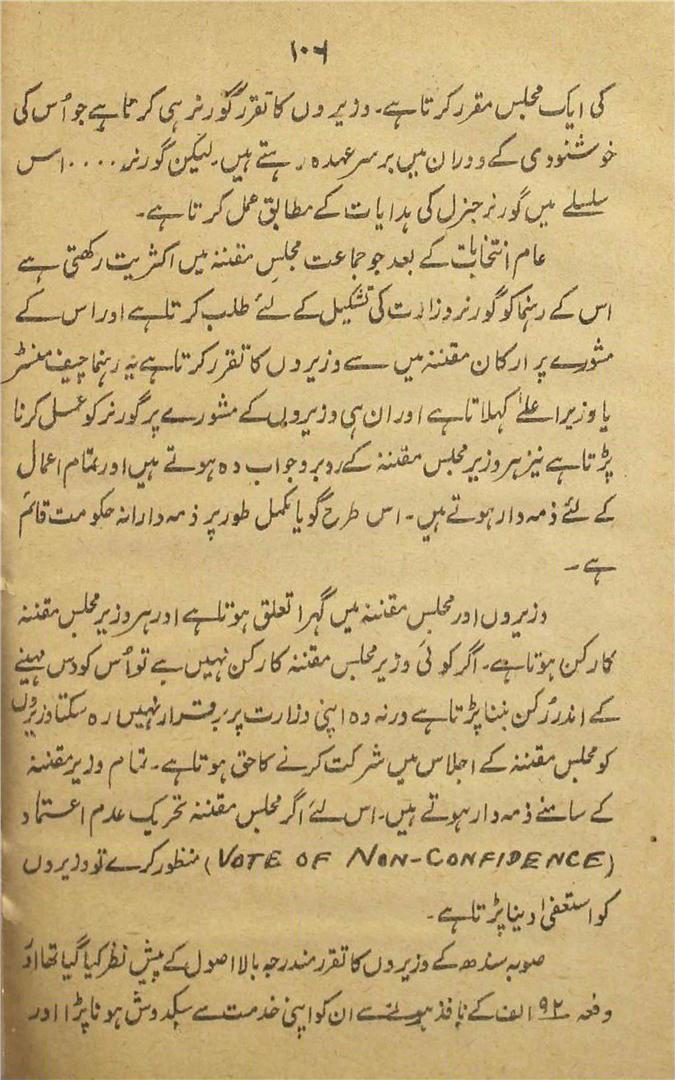 ۱۰۶
کی ایک مجلس مقرر کرتا ہے۔ وزیروں کا تقرر گورنر ہی کرتا ہے جو اُس کی
خوشنودی کے دوران میں برسر عہدہ رہتے ہیں۔ لیکن گورنر ۔۔۔۔ اس
سلسلے میں گورنر جنرل کی ہدایات کے مطابق عمل کرتا ہے۔
عام انتخابات کے بعد جو جماعت مجلسِ مقننہ میں اکثریت رکھتی ہے
اس کے رہنما کو گورنر وزارت کی تشکیل کے لئے طلب کرتا ہے اور اس کے
مشورے پر ارکان مقننہ میں سے وزیروں کا تقرر کرتا ہے یہ رہنما چیف منسٹر
یا وزیر اعلےٰ کہلاتا ہے اور ان ہی وزیروں کے مشورے پر گورنر کو عمل کرنا
پڑتا ہے نیز ہر وزیر مجلس مقننہ کے روبرو جواب دہ ہوتے ہیں اور تمام اعمال
کے لئے ذمہ دار ہوتے ہیں۔ اس طرح گویا مکمل طور پر ذمہ دارانہ حکومت قائم
ہے۔
وزیروں اور مجلس مقننہ میں گہرا تعلق ہوتا ہے اور ہر وزیر مجلس مقننہ
کا رکن ہوتا ہے۔ اگر کوئی وزیر مجلس مقننہ کا رکن نہیں ہے تو اُس کو دس مہینے
کے اندر رُکن بننا پڑتا ہے ورنہ وہ اپنی وزارت پر برقرار نہیں رہ سکتا وزیروں
کو مجلس مقننہ کے اجلاس میں شرکت کرنے کا حق ہوتا ہے۔ تمام وزیر مقننہ
کے سامنے ذمہ دار ہوتے ہیں۔ اس لئے اگر مجلس مقننہ تحریک عدم اعتماد
(VOTE OF NON-CONFIDENCE) منظور کرے تو وزیروں
کو استعفیٰ دینا پڑتا ہے۔
صوبہ سندھ کے وزیروں کا تقرر مندرجہ بالا اصول کے پیش نظر کیا گیا تھا اور
دفعہ ۹۲ الف کے نافذ ہونے سے ان کو اپنی خدمت سے سبکدوش ہونا پڑا اور